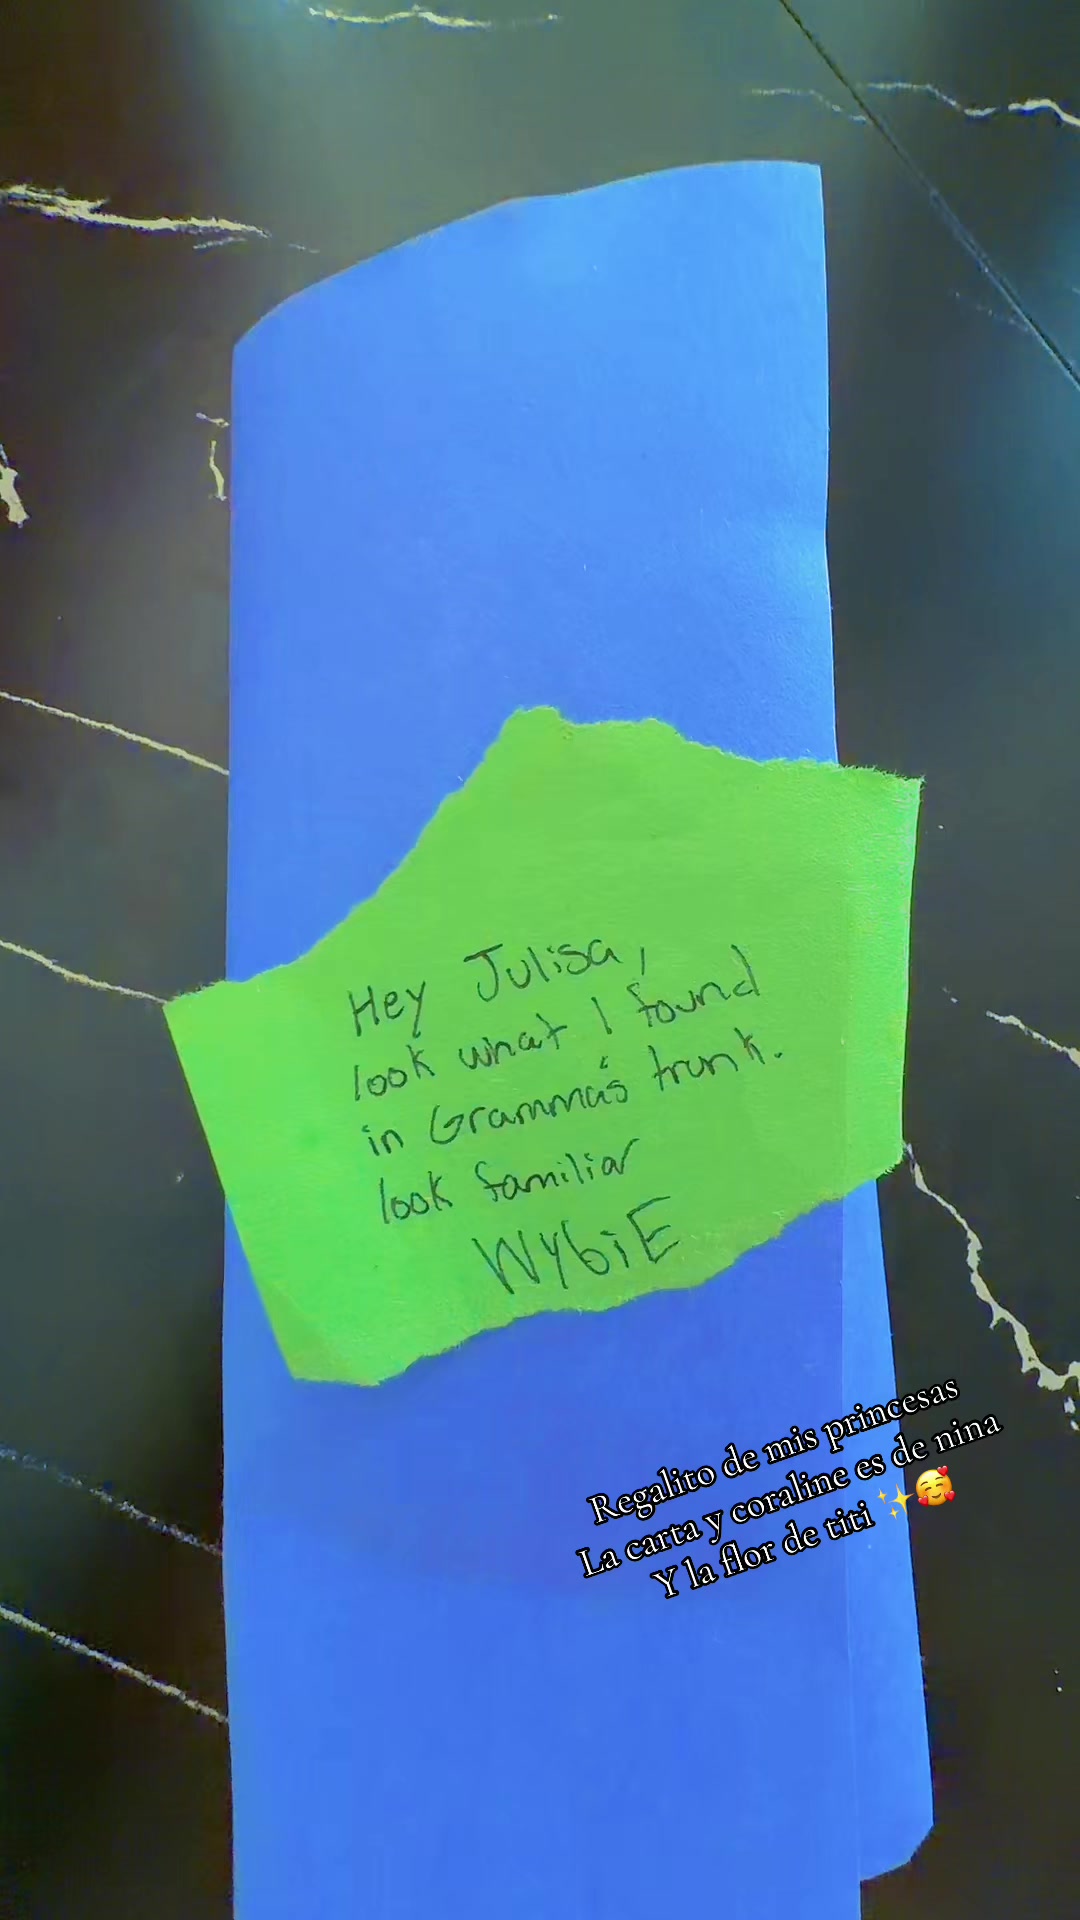 Hey Julisa,
look what I found
in Gramma's trunk.
look familiar
WybiE
Regalito de mis princesas
La carta y coraline es de nina
Y la flor de titi ✨🥰